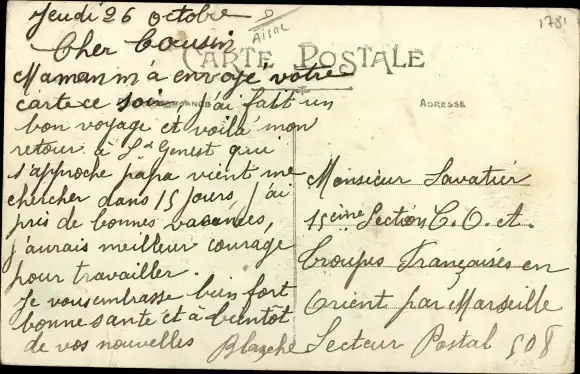 Jeudi 26 octobre
D
Aisne
1781
Cher Cousin
CARTE POSTALE
Maman m'a envoyé votre
carte ce soir j'ai fait un
ADRESSE
bon voyage et voilà mon
retour à St Genest qui
s'approche papa vient me
chercher dans 15 jours, j'ai
pris de bonnes vacances,
j'aurais meilleur courage
pour travailler.
Je vous embrasse bien fort
bonne santé et à bientôt
de vos nouvelles Blanche
Monsieur Lavatier
15ème Section C.O.A.
Troupes Françaises en
Orient par Marseille
Secteur Postal 508